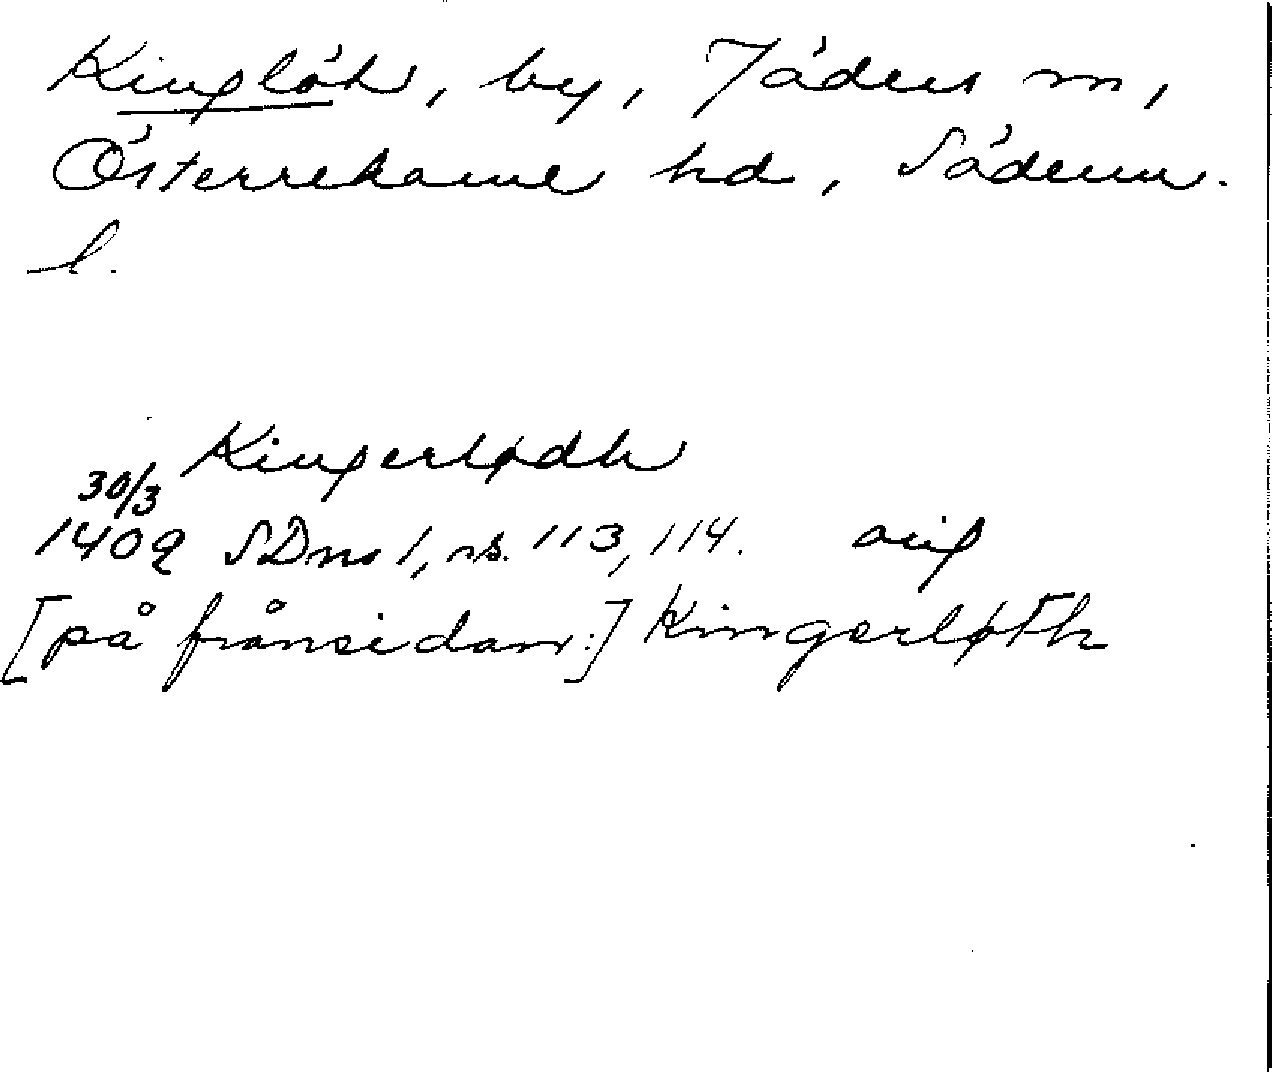 Kinglöt, by, Jäders sn,
Österrekarne hd, Söderm.
l.
Kingerlødh
30/3
1409 SDns 1, ns. 113, 114. orig
[på frånsidan:] Kingerløth